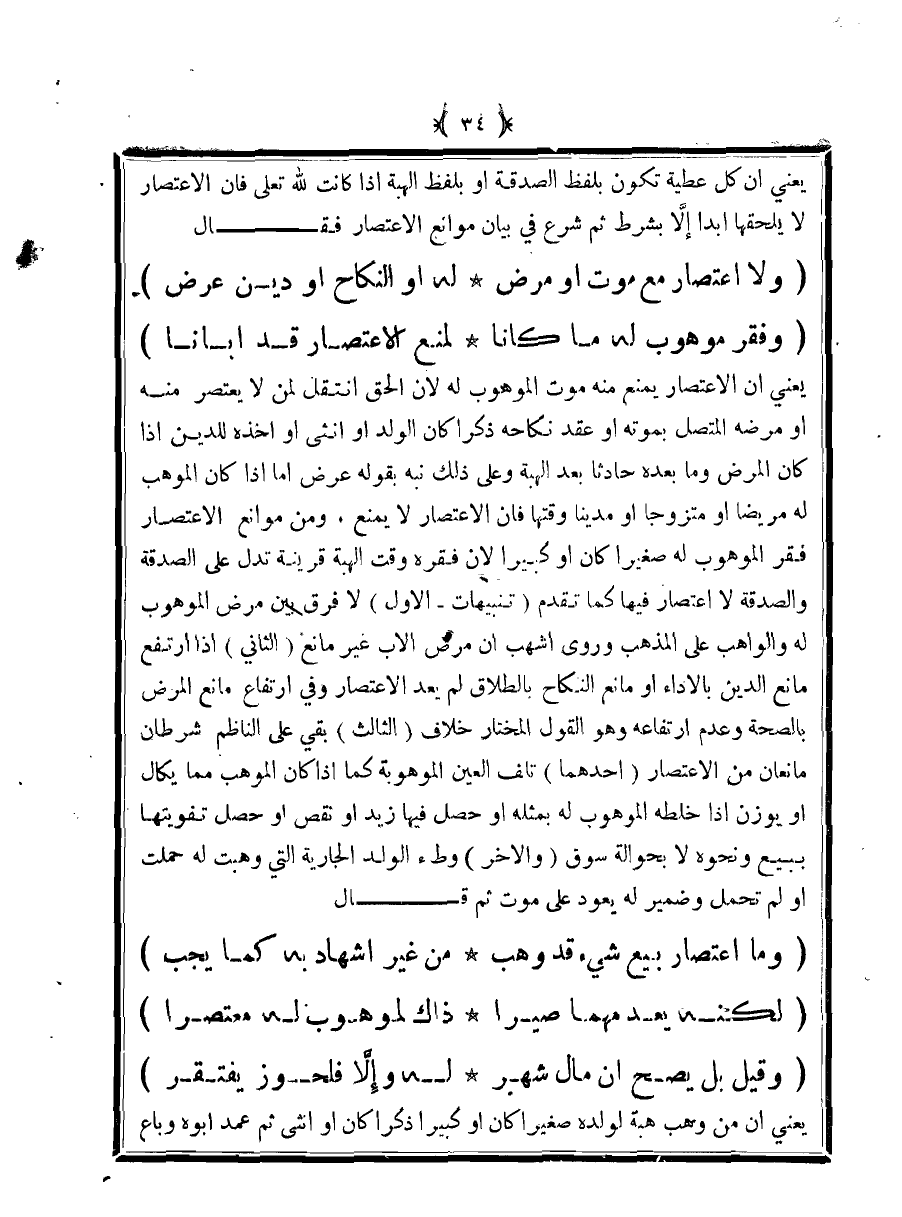 ﴿ ٣٤ ﴾
يعني ان كل عطية تكون بلفظ الصدقة او بلفظ الهبة اذا كانت لله تعلى فان الاعتصار
لا يلحقها ابدا إلَّا بشرط ثم شرع في بيان موانع الاعتصار فقـــــال
( ولا اعتصار مع موت او مرض * له او النكاح او ديـن عرض )
( وفقر موهوب له مـا كانا * لمنـع الاعتصـار قـد ابـانـا )
يعني ان الاعتصار يمنع منه موت الموهوب له لان الحق انتقل لمن لا يعتصر منـه
او مرضه المتصل بموته او عقد نكاحه ذكرا كان الولد او انثى او اخذه للدين اذا
كان المرض وما بعده حادثا بعد الهبة وعلى ذلك نبه بقوله عرض اما اذا كان الموهب
له مريضا او متزوجا او مدينا وقتها فان الاعتصار لا يمنع . ومن موانع الاعتصـار
فقر الموهوب له صغيرا كان او كبيرا لان فقره وقت الهبة قرينة تدل على الصدقة
والصدقة لا اعتصار فيها كما تقدم ( تنبيهات - الاول ) لا فرق بين مرض الموهوب
له والواهب على المذهب وروى اشهب ان مرض الاب غير مانع ( الثاني ) اذا ارتفع
مانع الدين بالاداء او مانع النكاح بالطلاق لم يعد الاعتصار وفي ارتفاع مانع المرض
بالصحة وعدم ارتفاعه وهو القول المختار خلاف ( الثالث ) بقي على الناظم شرطان
مانعان من الاعتصار ( احدهما ) تلف العين الموهوبة كما اذا كان الموهب مما يكال
او يوزن اذا خلطه الموهوب له بمثله او حصل فيها زيد او نقص او حصل تفويتهـا
ببيـع ونحوه لا بحوالة سوق ( والاخر ) وطء الولد الجارية التي وهبت له حملت
او لم تحمل وضمير له يعود على موت ثم قـــــال
( وما اعتصار بيع شيء قد وهب * من غير اشهاد به كمـا يجب )
( لكنـه يعـد مهمـا صيـرا * ذاك لموهـوب لـه معتصـرا )
( وقيل بل يصـح ان مال شهـر * لـه وإلَّا فلحـوز يفتـقـر )
يعني ان من وهب هبة لولده صغيرا كان او كبيرا ذكرا كان او انثى ثم عمد ابوه وباع